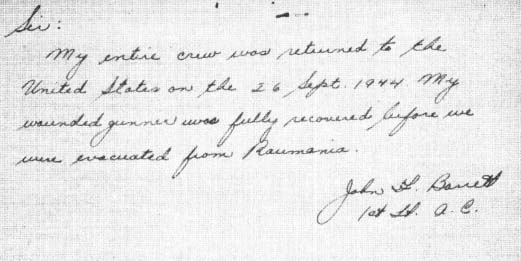 Sir:
My entire crew was returned to the
United States on the 26 Sept. 1944. My
wounded gunner was fully recovered before we
were evacuated from Raumania.
John F. Barrett
1st Lt. A.C.